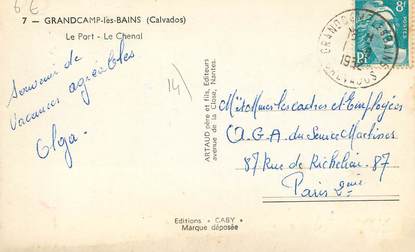 6 €
7 - GRANDCAMP-les-BAINS (Calvados)
Le Port - Le Chenal
8F
Souvenir de
Vacances agréables
Olga.
14
ARTAUD père et fils, Editeurs
avenue de la Close, Nantes.
les cadres et Employées
A.G.A du Maritimes
87 Rue de Richelieu. 87
Paris 2ème
Editions " GABY "
Marque déposée